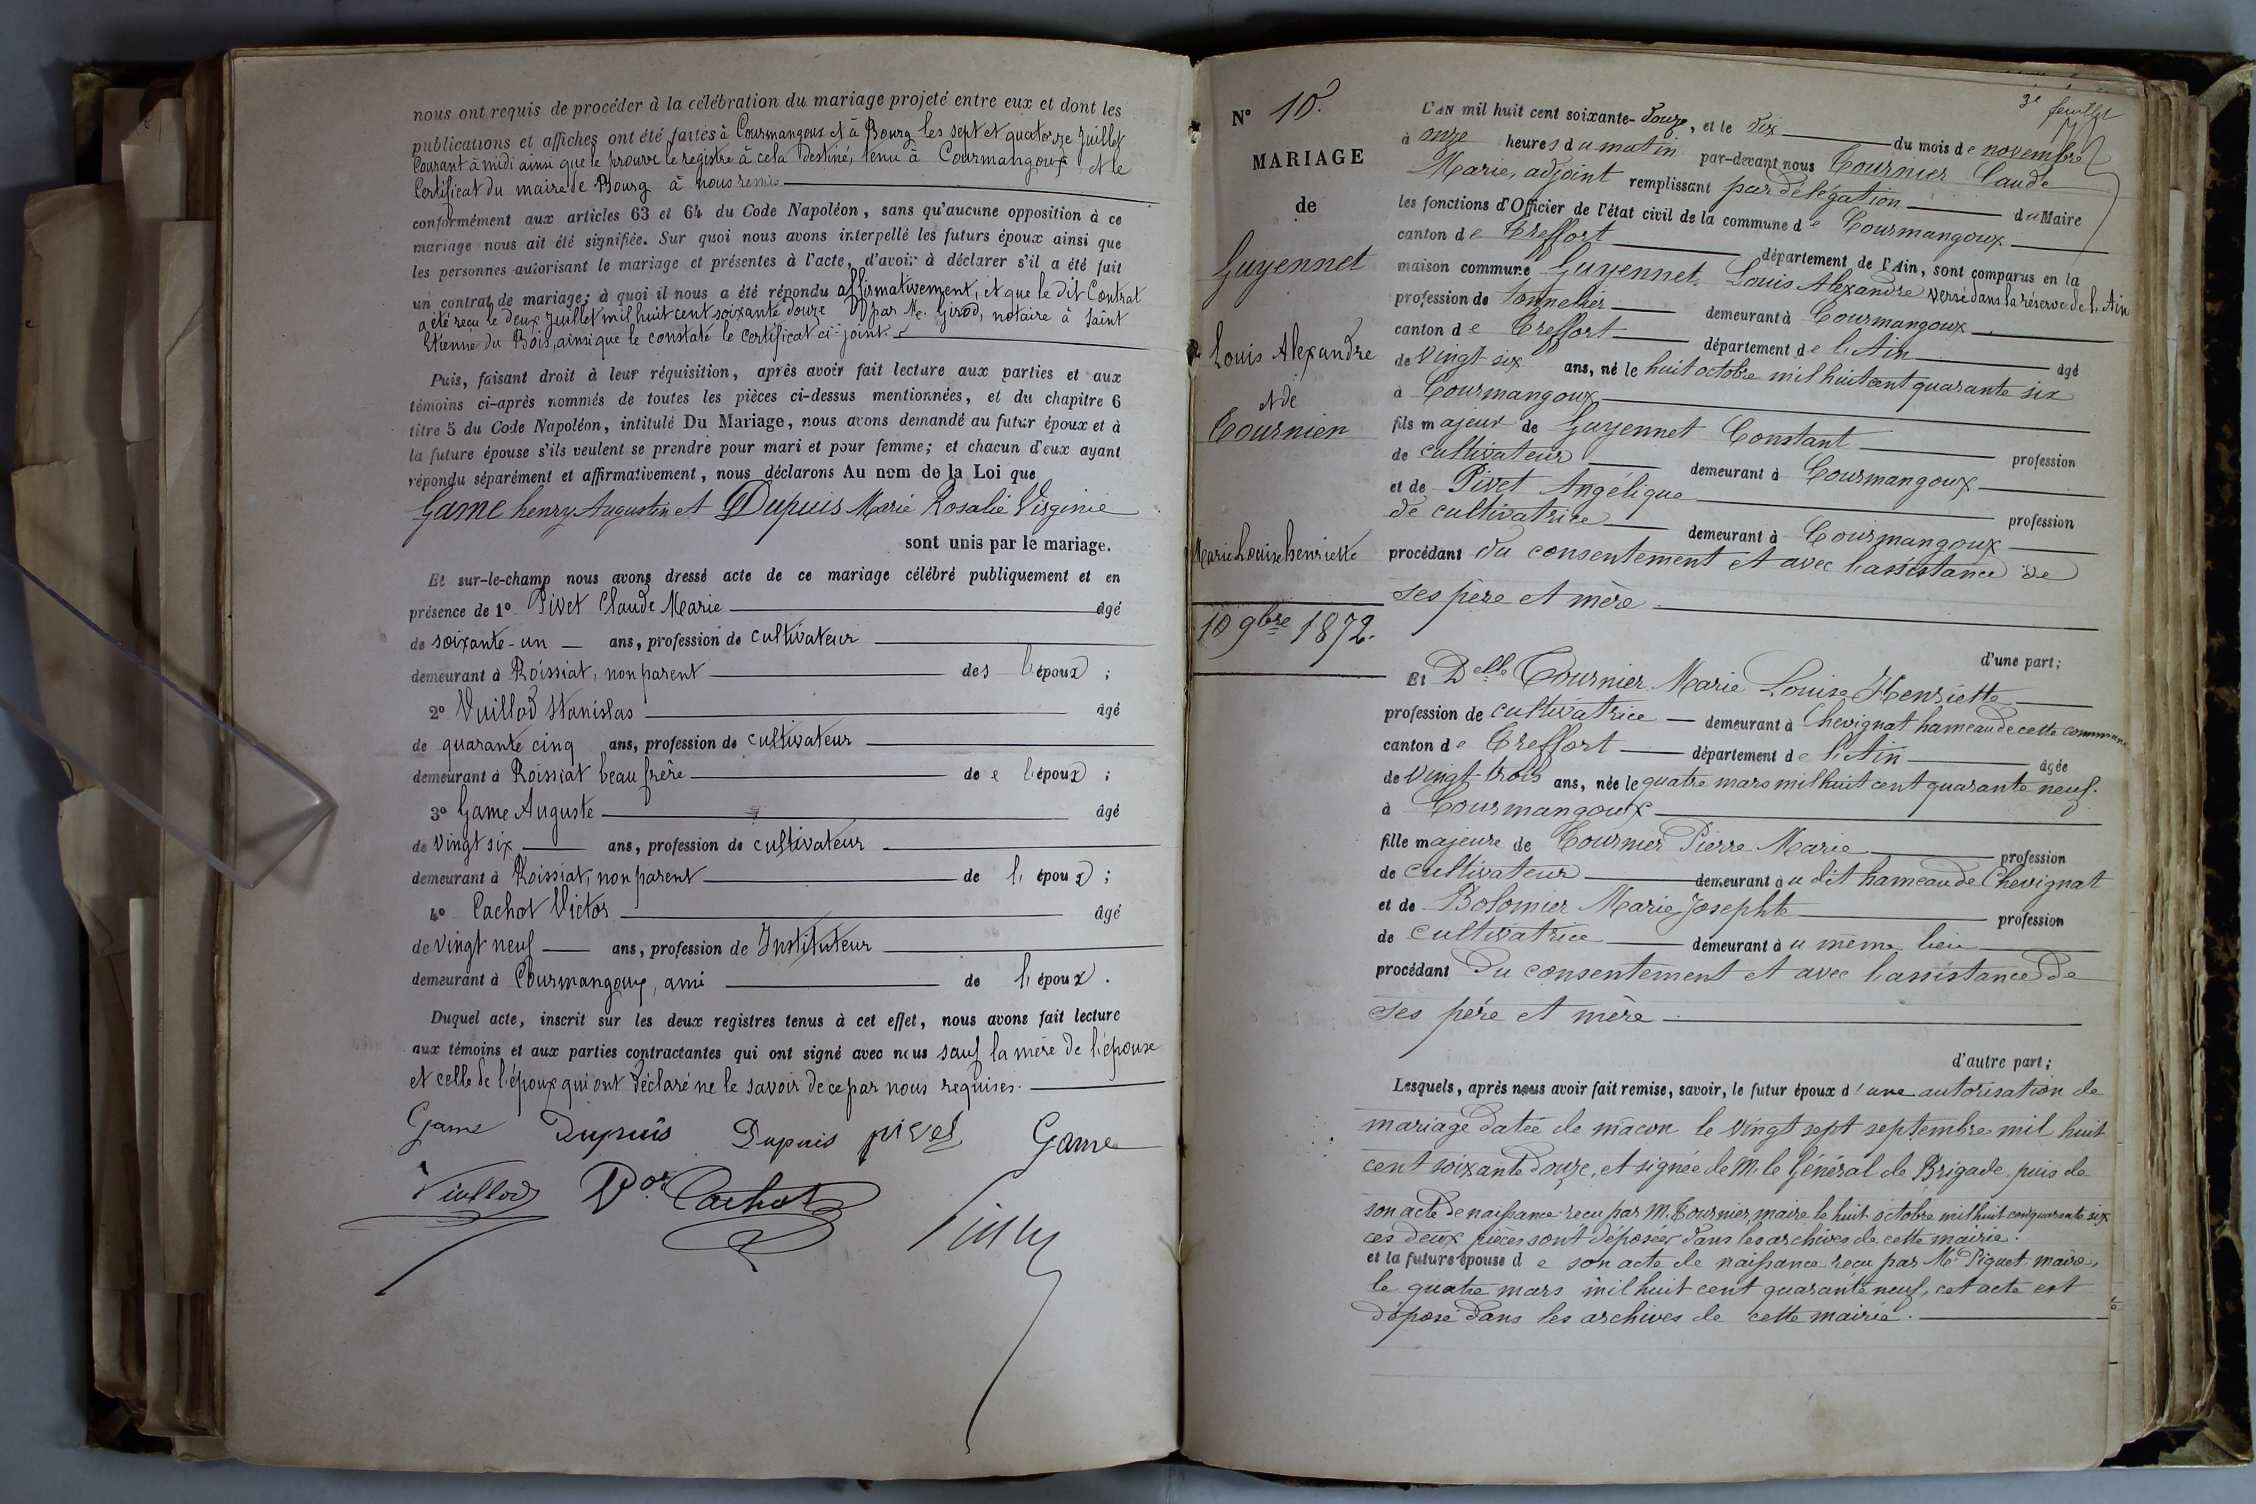 nous ont requis de procéder à la célébration du mariage projeté entre eux et dont les
publications et affiches ont été faites à Courmangoux et à Bourg les sept et quatorze Juillet
Courant à midi ainsi que le prouve le registre à cela destiné, tenu à Courmangoux et le
Certificat du maire de Bourg à nous remis
conformément aux articles 63 et 64 du Code Napoléon, sans qu'aucune opposition à ce
mariage nous ait été signifiée. Sur quoi nous avons interpellé les futurs époux ainsi que
les personnes autorisant le mariage et présentes à l'acte, d'avoir à déclarer s'il a été fait
un contrat de mariage; à quoi il nous a été répondu affirmativement, et que le dit Contrat
a été reçu le deux Juillet mil huit cent soixante douze par Me. Girod, notaire à Saint
Etienne du Bois, ainsi que le constate le certificat ci-joint.
Puis, faisant droit à leur réquisition, après avoir fait lecture aux parties et aux
témoins ci-après nommés de toutes les pièces ci-dessus mentionnées, et du chapitre 6
titre 5 du Code Napoléon, intitulé Du Mariage, nous avons demandé au futur époux et à
la future épouse s'ils veulent se prendre pour mari et pour femme; et chacun d'eux ayant
répondu séparément et affirmativement, nous déclarons Au nom de la Loi que
Game henry Augustin et Dupuis Marie Rosalie Virginie
sont unis par le mariage.
Et sur-le-champ nous avons dressé acte de ce mariage célébré publiquement et en
présence de 1o Pivet Claude Marie âgé
de soixante-un ans, profession de cultivateur
demeurant à Roissiat, non parent des époux ;
2o Vuillod Stanislas âgé
de quarante cinq ans, profession de cultivateur
demeurant à Roissiat beau frère de l'époux ;
3o Game Auguste âgé
de vingt six ans, profession de cultivateur
demeurant à Roissiat, non parent de l'époux ;
4o Cachot Victor âgé
de vingt neuf ans, profession de Instituteur
demeurant à Courmangoux, ami de l'époux.
Duquel acte, inscrit sur les deux registres tenus à cet effet, nous avons fait lecture
aux témoins et aux parties contractantes qui ont signé avec nous sauf la mère de l'épouse
et celle de l'époux qui ont déclaré ne le savoir de ce par nous requises.
Game Dupuis Dupuis pivet Game
Vuillod Vor Cachot
3e feuillet
No 10.
MARIAGE
de
Guyennet
Louis Alexandre
et de
Tournier
Marie Louise henriette
10 9bre 1872.
L'AN mil huit cent soixante-douze, et le dix du mois de novembre
à onze heures du matin par-devant nous Tournier Claude
Marie, adjoint remplissant par délégation du Maire
les fonctions d'Officier de l'état civil de la commune de Courmangoux
canton de Treffort département de l'Ain, sont comparus en la
maison commune Guyennet Louis Alexandre versé dans la réserve de l'Ain
profession de Tonnelier demeurant à Courmangoux
canton de Treffort département de l'Ain âgé
de vingt six ans, né le huit octobre mil huit cent quarante six
à Courmangoux
fils majeur de Guyennet Constant profession
de cultivateur demeurant à Courmangoux
et de Pivet Angélique profession
de cultivatrice demeurant à Courmangoux
procédant du consentement et avec l'assistance de
ses père et mère.
d'une part;
Et Delle Tournier Marie Louise Henriette
profession de cultivatrice demeurant à Chevignat hameau de cette commune
canton de Treffort département de l'Ain âgée
de vingt-trois ans, née le quatre mars mil huit cent quarante neuf.
à Courmangoux
fille majeure de Tournier Pierre Marie profession
de cultivateur demeurant au dit hameau de Chevignat
et de Bolomier Marie Josephte profession
de cultivatrice demeurant au même lieu
procédant du consentement et avec l'assistance de
ses père et mère
d'autre part;
Lesquels, après nous avoir fait remise, savoir, le futur époux d'une autorisation de
mariage datée de mâcon le vingt sept septembre mil huit
cent soixante douze, et signée de M. le Général de Brigade, puis de
son acte de naissance reçu par M. Tournier, maire le huit octobre mil huit cent quarante six
ces deux pièces sont déposées dans les archives de cette mairie.
et la future épouse de son acte de naissance reçu par Mr. Piquet maire,
le quatre mars mil huit cent quarante neuf, cet acte est
déposé dans les archives de cette mairie.